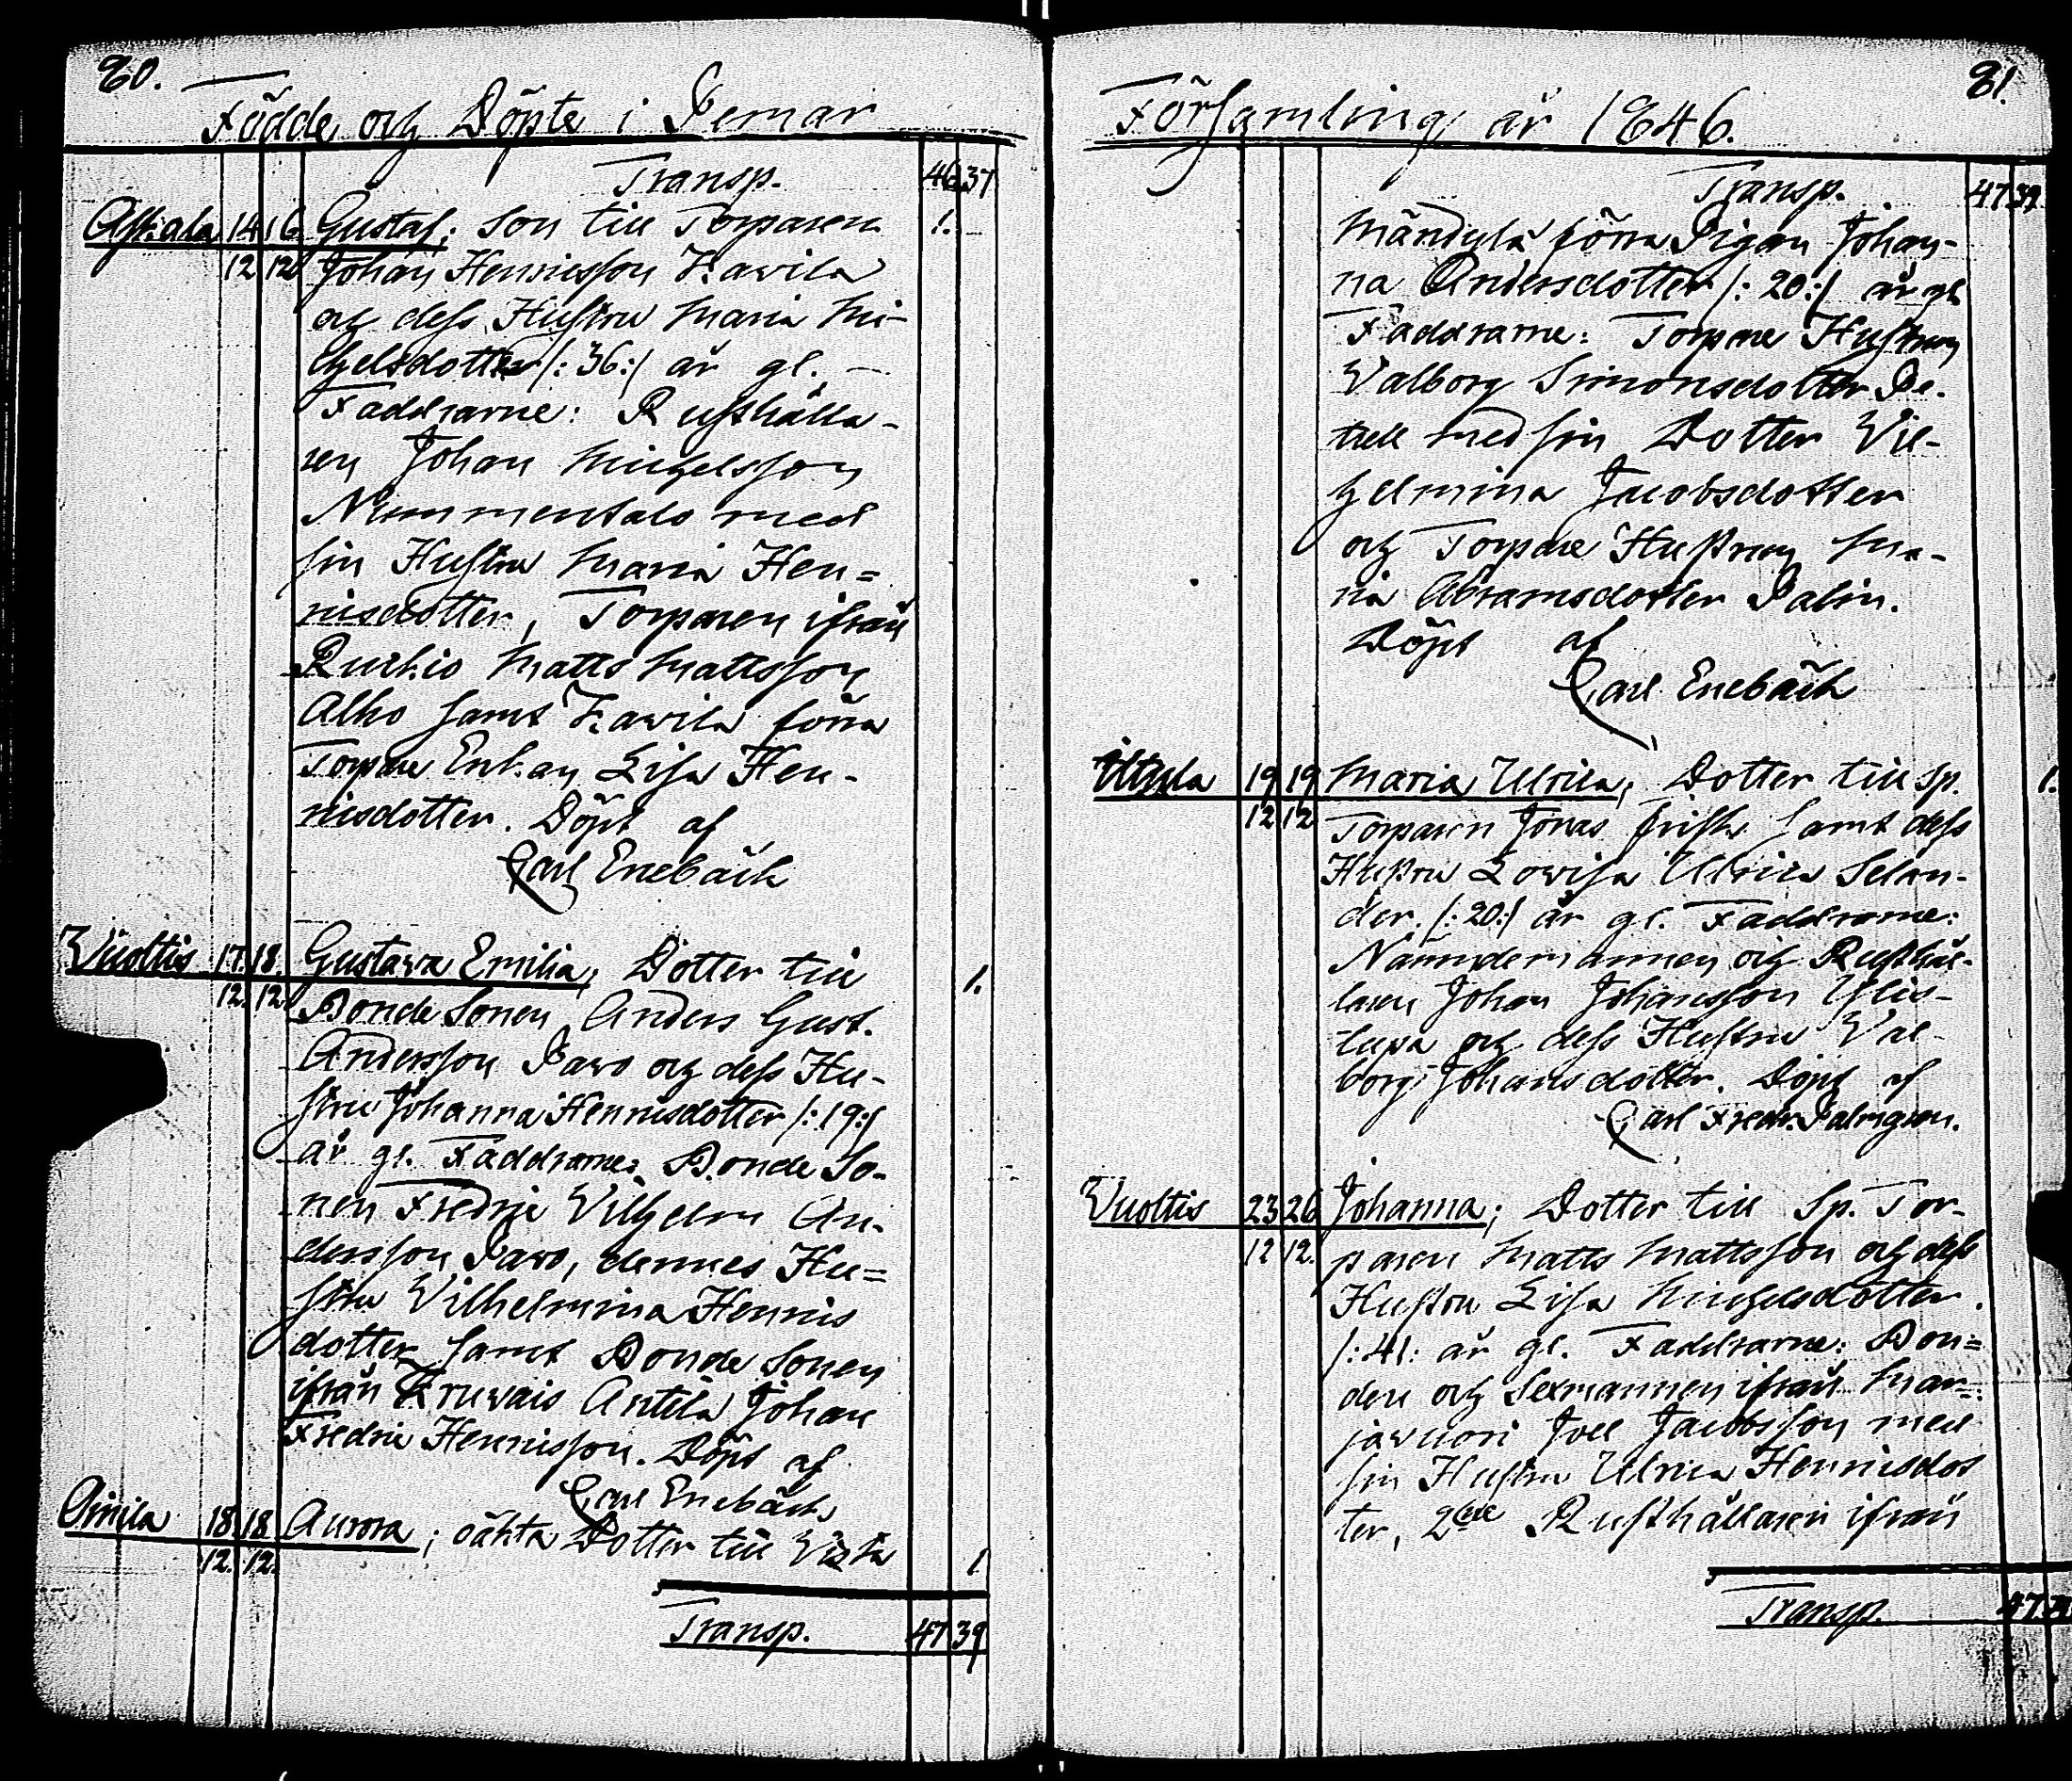 80.
Födde och Döpte i Pemar
Transp. 46 37
Askala 14 16 Gustaf; Son till Torparen 1.
12 12 Johan Henricsson Kawila
och dess Hustru Maria Mi-
chelsdotter /: 36:/ år gl. –
Faddrarne: Rusthålla-
ren Johan Michelsson
Nummentalo med
sin Hustru Maria Hen=
ricsdotter, Torparen ifrån
Ruskio Matts Mattsson
Alho samt Kawila förra
Torpare Enkan Lisa Hen-
ricsdotter. Döpt af
Carl Enebäck
Wuoltis 17. 18. Gustava Emilia; Dotter till 1.
12. 12. Bonde Sonen Anders Gust.
Andersson Pavo och dess Hu-
stru Johanna Henricsdotter /: 19:/
år gl. Faddrarne: Bonde So-
nen Fredric Vilhelm An-
dersson Pavo, dennes Hu=
stru Vilhelmina Henrics
dotter samt Bonde Sonen
ifrån Kruvais Antila Johan
Fredric Henricsson. Döpt af
Carl Enebäck
18. 18. Aurora; oäkta Dotter till Wista 1
12. 12.
Transp. 47 39
81.
Församling år 1846.
Transp. 47 39
Mändylä förra Pigan Johan-
na Andersdotter /: 20:/ år gl.
Faddrarne: Torpare Hustrun
Valborg Simonsdotter Pe-
med sin Dotter Vil-
helmina Jacobsdotter
och Torpare Hustrun Ma-
ria Abramsdotter Palin.
Döpt af
Carl Enebäck
19 19 Maria Ulrica; Dotter till Sp. 1.
12 12 Torparen Jonas Frisk samt dess
Hustru Lowisa Ulrica Selan-
der. /: 20:/ år gl. Faddrarne:
Nämndemannen och Rusthål-
laren Johan Johansson Ylis-
tupa och dess Hustru Val-
borg Johansdotter. Döpt af
Carl Fredr. Palmgren.
Wuoltis 23 26 Johanna; Dotter till Sp. Tor-
12 12. paren Matts Mattsson och dess
Hustru Lisa Michelsdotter.
/: 41: år gl. Faddrarne: Bon=
den och Sexmannen ifrån Mar-
jawuori Joel Jacobsson med
sin Hustru Ulrica Henricsdot
ter, 2dre Rusthållaren ifrån
Transp. 47 39